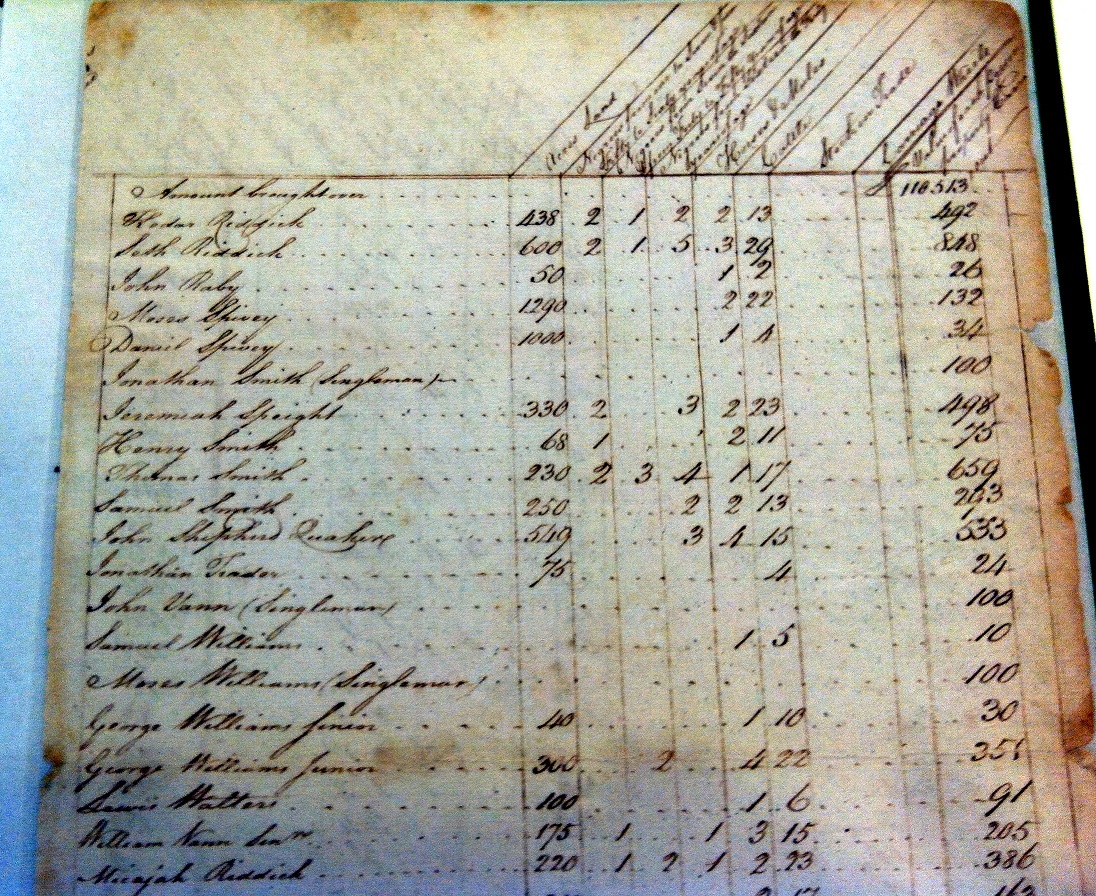 Acres Land
Horses & Mules
Cattle
Stock in Trade
Amount brought over 110513
Kedar Riddick 438 2 1 2 2 13 492
Seth Riddick 600 2 1 5 3 29 848
John Raby 50 1 2 26
Moses Spivey 1290 2 22 132
Daniel Spivey 1000 1 4 34
Jonathan Smith (Singleman) 100
Jeremiah Speight 330 2 3 2 23 498
Henry Smith 68 1 2 11 75
Thomas Smith 230 2 3 4 1 17 659
Samuel Smith 250 2 2 13 293
John Shepherd Quaker 549 3 4 15 533
Jonathan Trader 75 4 24
John Vann (Singleman) 100
Samuel Williams 1 5 10
Moses Williams (Singleman) 100
George Williams Senior 40 1 10 30
George Williams Junior 300 2 4 22 351
Lewis Walters 100 1 6 91
William Vann Senr 175 1 1 3 15 205
Micajah Riddick 220 1 2 1 2 23 386